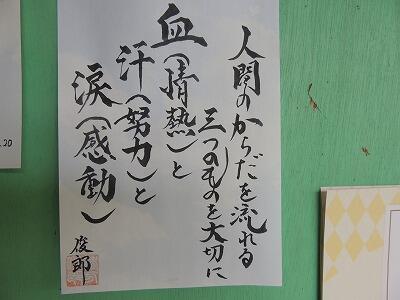 人間のからだを流れる
三つのものを大切に
血（情熱）と
汗（努力）と
涙（感動）
俊郎
.20